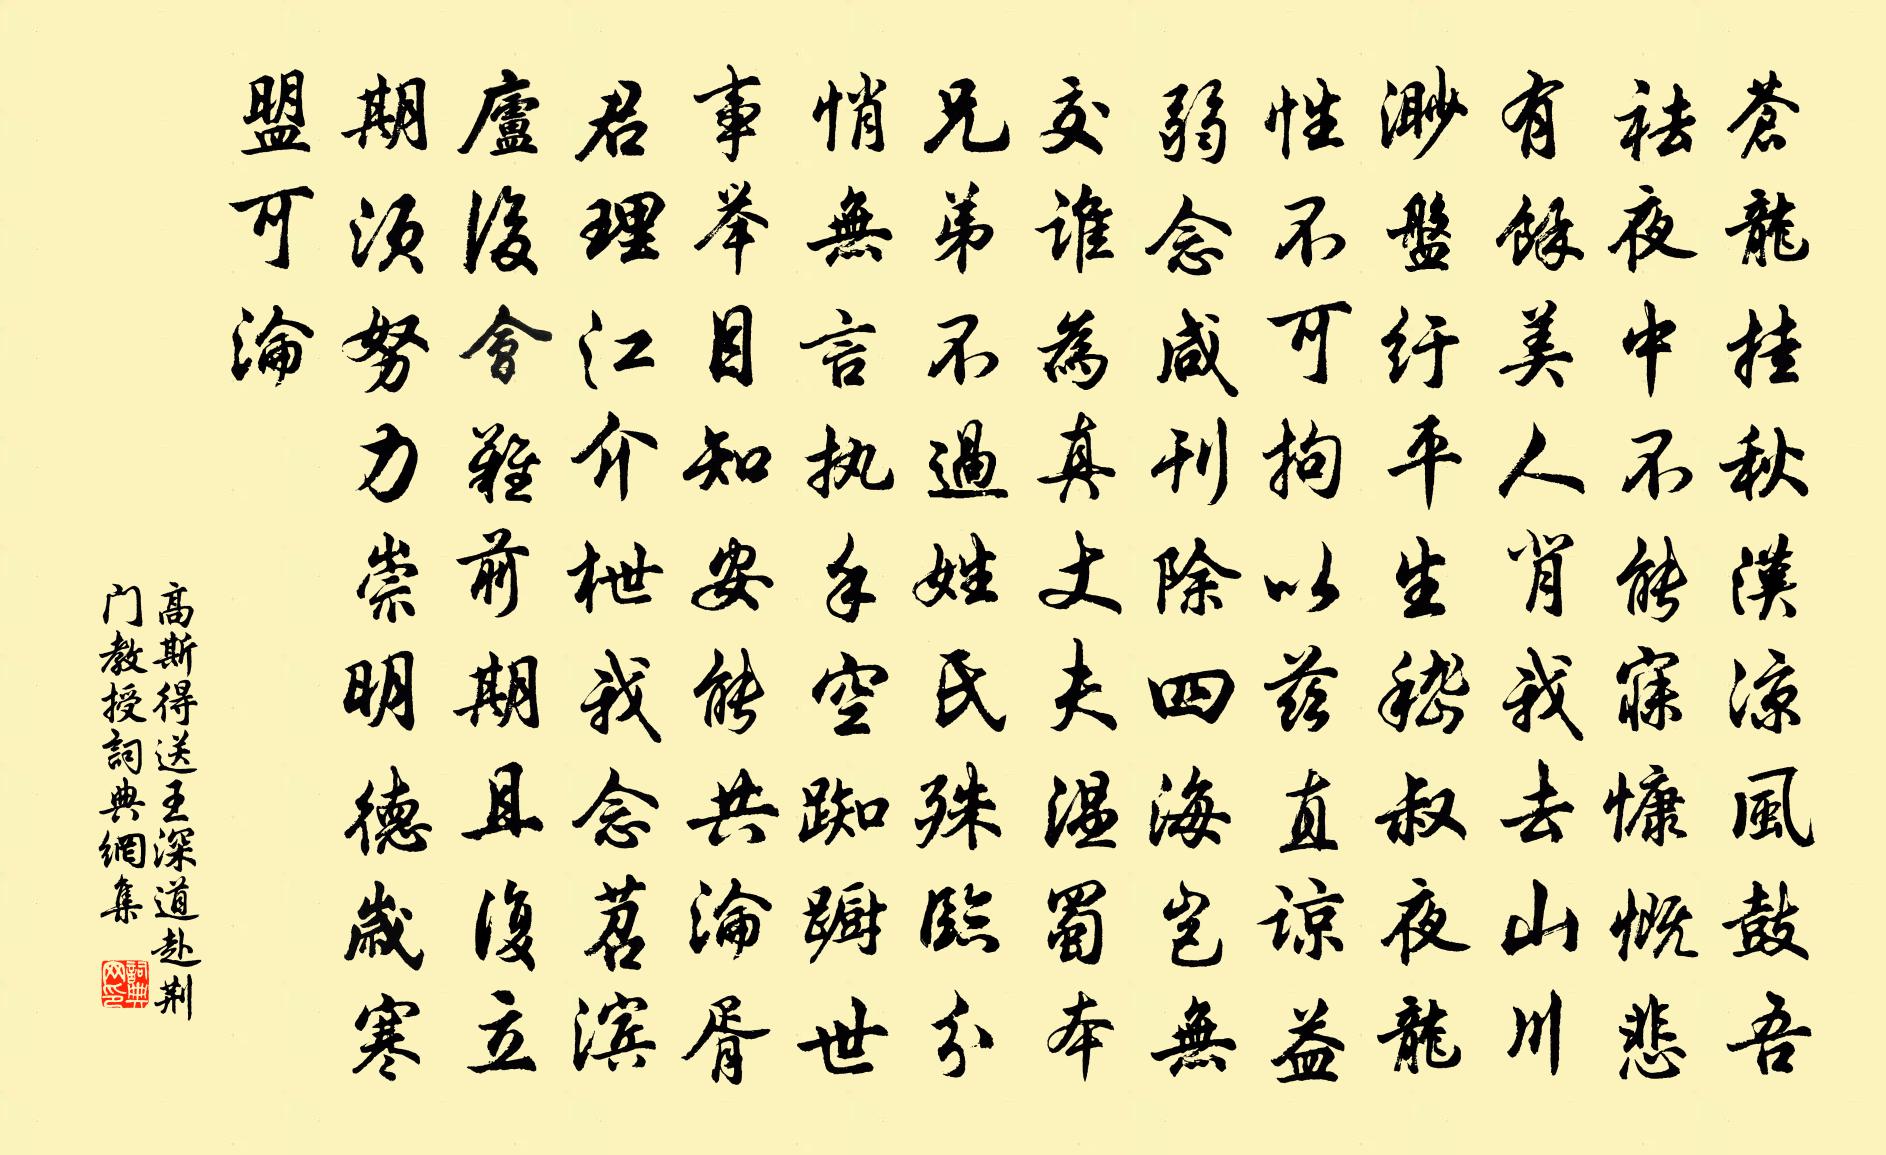 蒼龍挂秋漢涼風鼓吾
袪夜中不能寐慷慨悲
有餘美人肯我去山川
渺盤紆平生嵇叔夜龍
性不可拘以兹直諒益
弱念咸刊除四海豈無
交誰為真丈夫温蜀本
兄弟不過姓氏殊臨分
悄無言执手空踟蹰世
事举目知安能共淪胥
君理江介枻我念苕滨
廬後會難前期且復立
期须努力崇明德歲寒
盟可淪
高斯得送王深道赴荆
门教授詞典網集
詞典